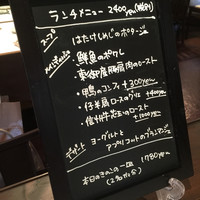 ランチメニュー 2400yen(税別)
スープ
はたけしめじのポタージュ
メインディッシュ
・鮮魚のポワレ
・豚肩肉のロースト
・鴨のコンフィ +300yen
・仔羊ロースのグリエ +400yen
・信州牛のロースト +1000yen
デザート
ヨーグルトと
アプリコットのブランマンジェ
本日のきのこの一皿 1780yen